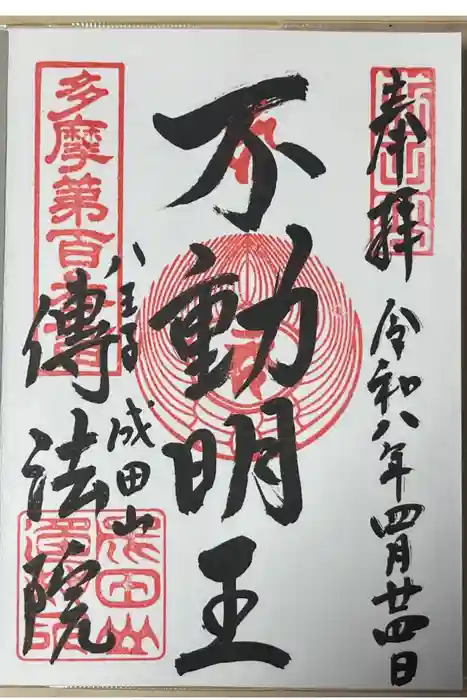 奉拝
令和八年四月廿四日
不動明王
八王子
成田山
傳法院
多摩第百
成田山